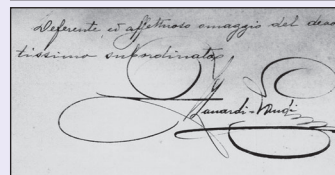 Deferente ed affettuoso omaggio del devo
tissimo subordinato,
Lanardi-